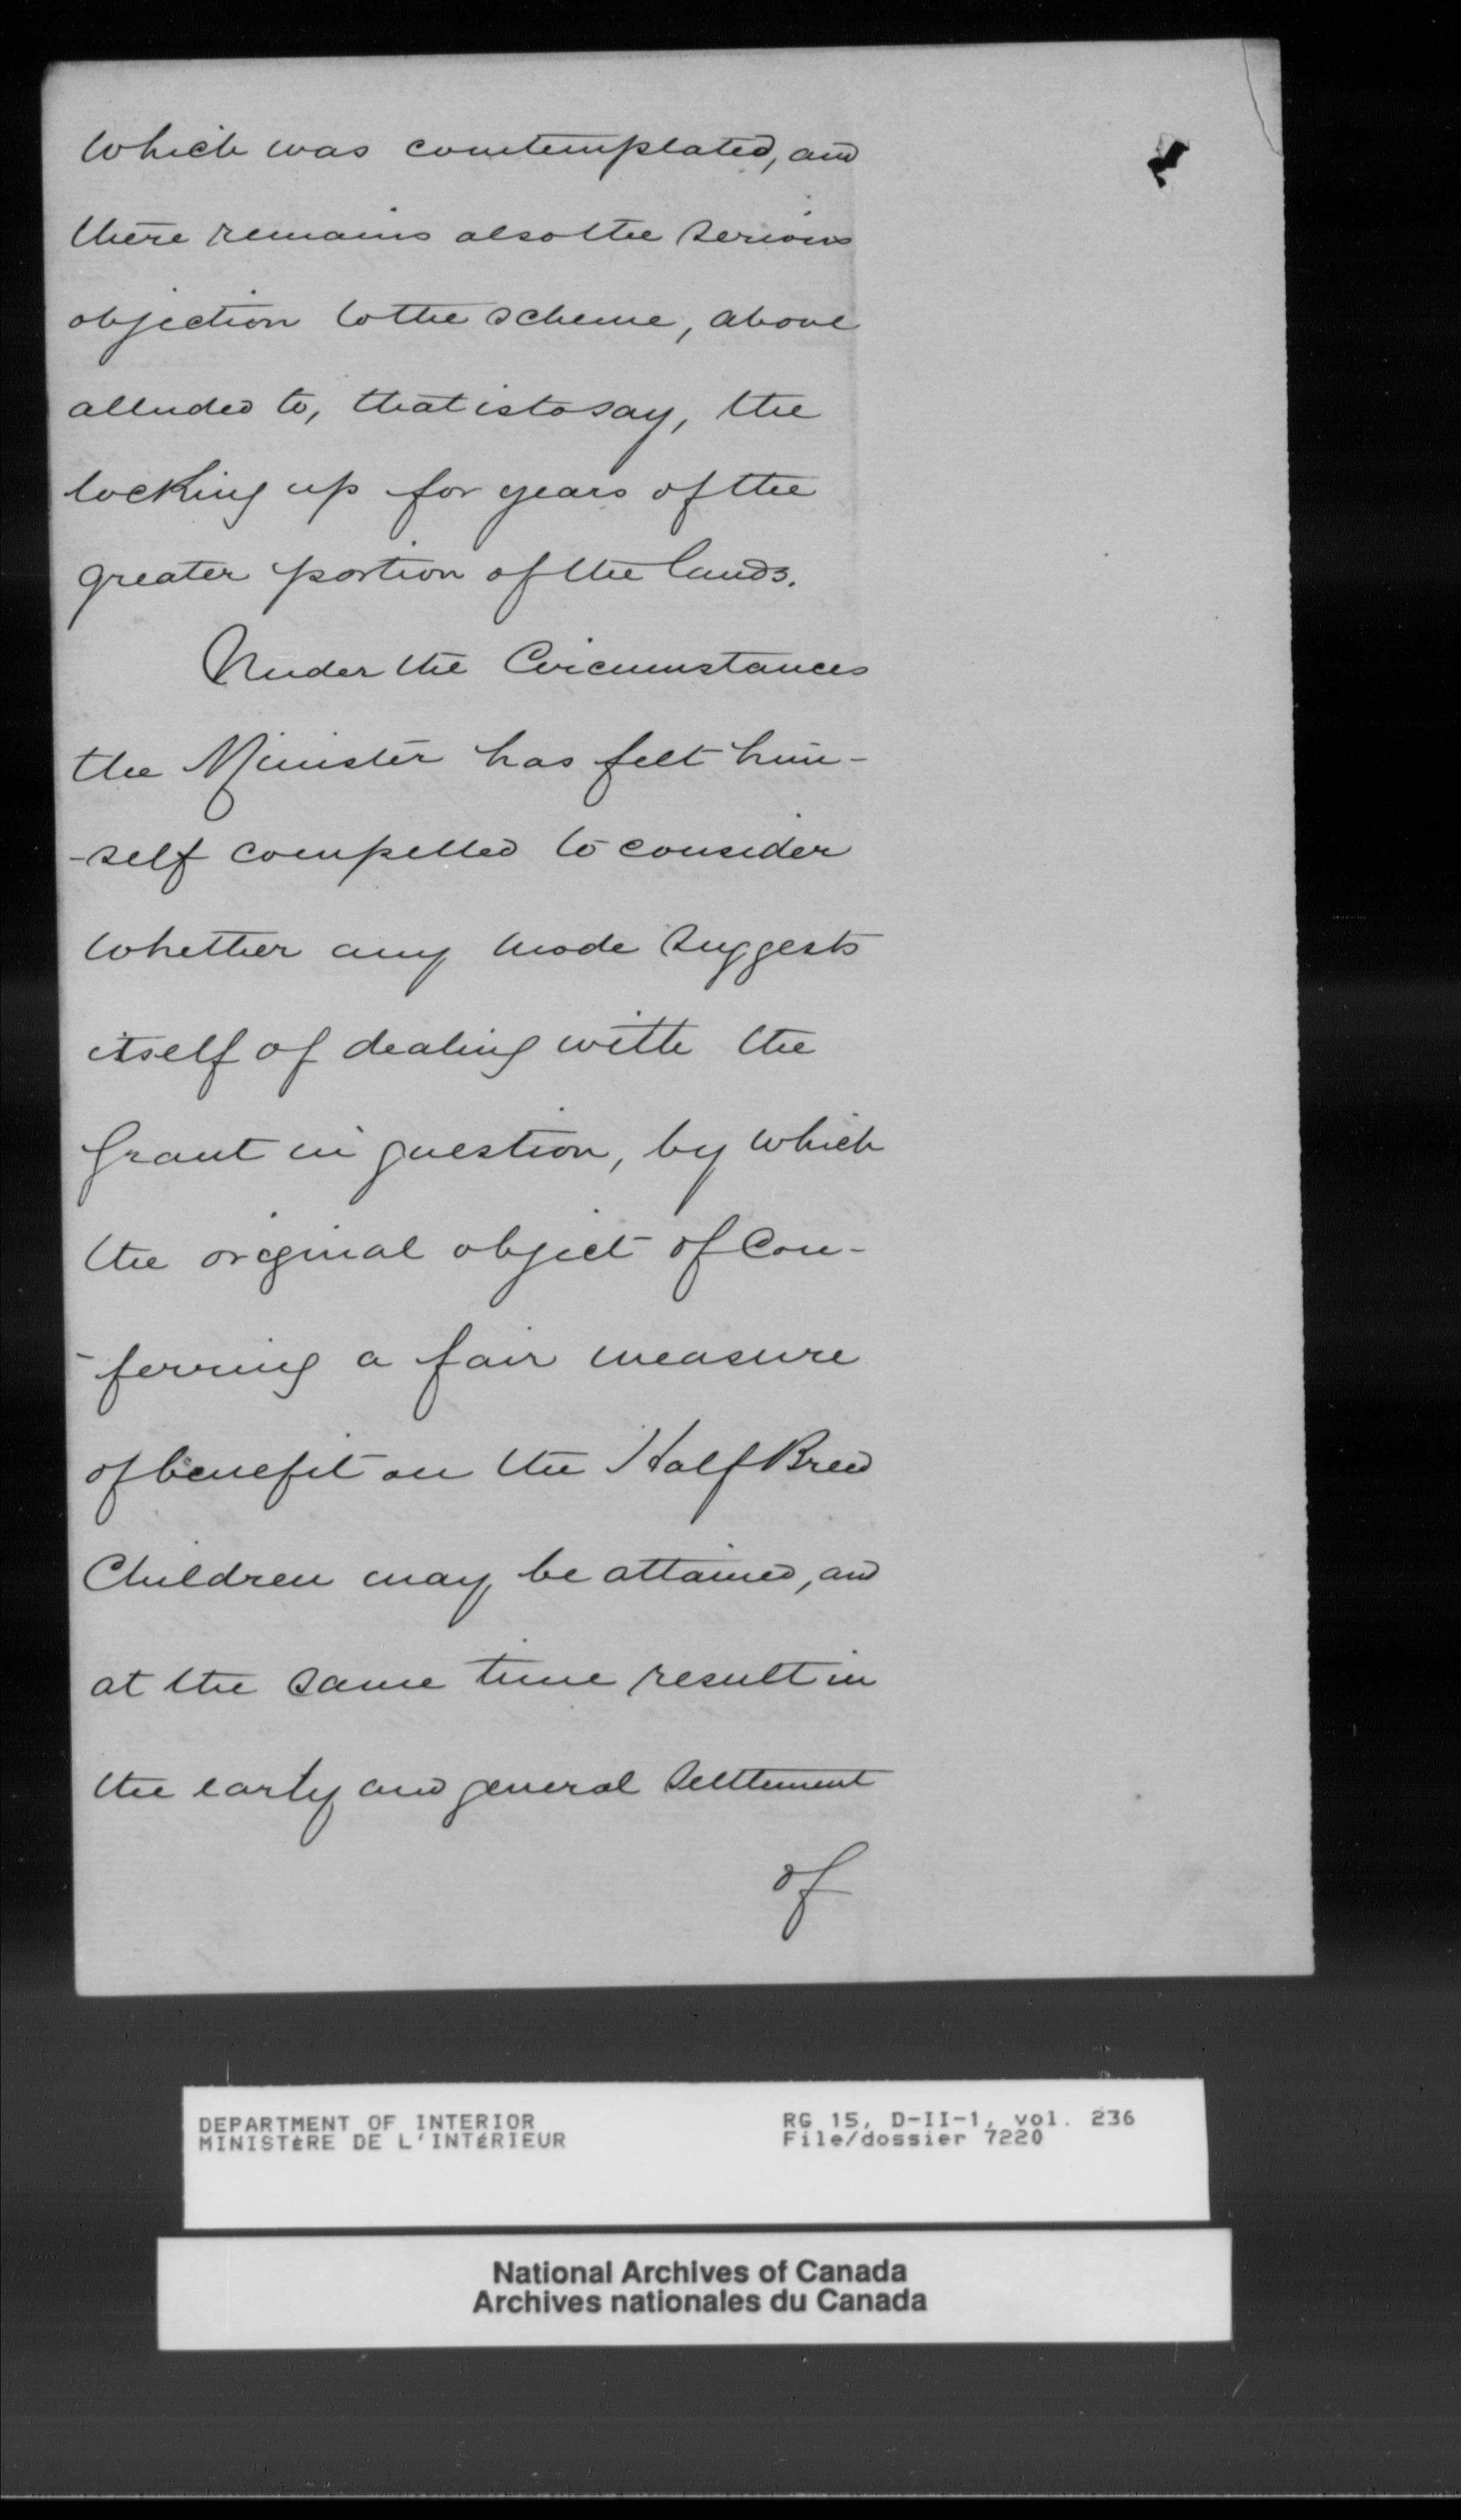 which was contemplated, and
there remains also the serious
objection to the scheme, above
alluded to, that is to say, the
locking up for years of the
greater portion of the lands.
Under the Circumstances
the Minister has felt him-
-self compelled to consider
whether any mode suggests
itself of dealing with the
Grant in question, by which
the original object of Con-
-ferring a fair measure
of benefit on the Half Breed
Children may be attained, and
at the same time result in
the early and general settlement
of
DEPARTMENT OF INTERIOR
MINISTÈRE DE L'INTÉRIEUR
RG 15, D-II-1, vol. 236
File/dossier 7220
National Archives of Canada
Archives nationales du Canada